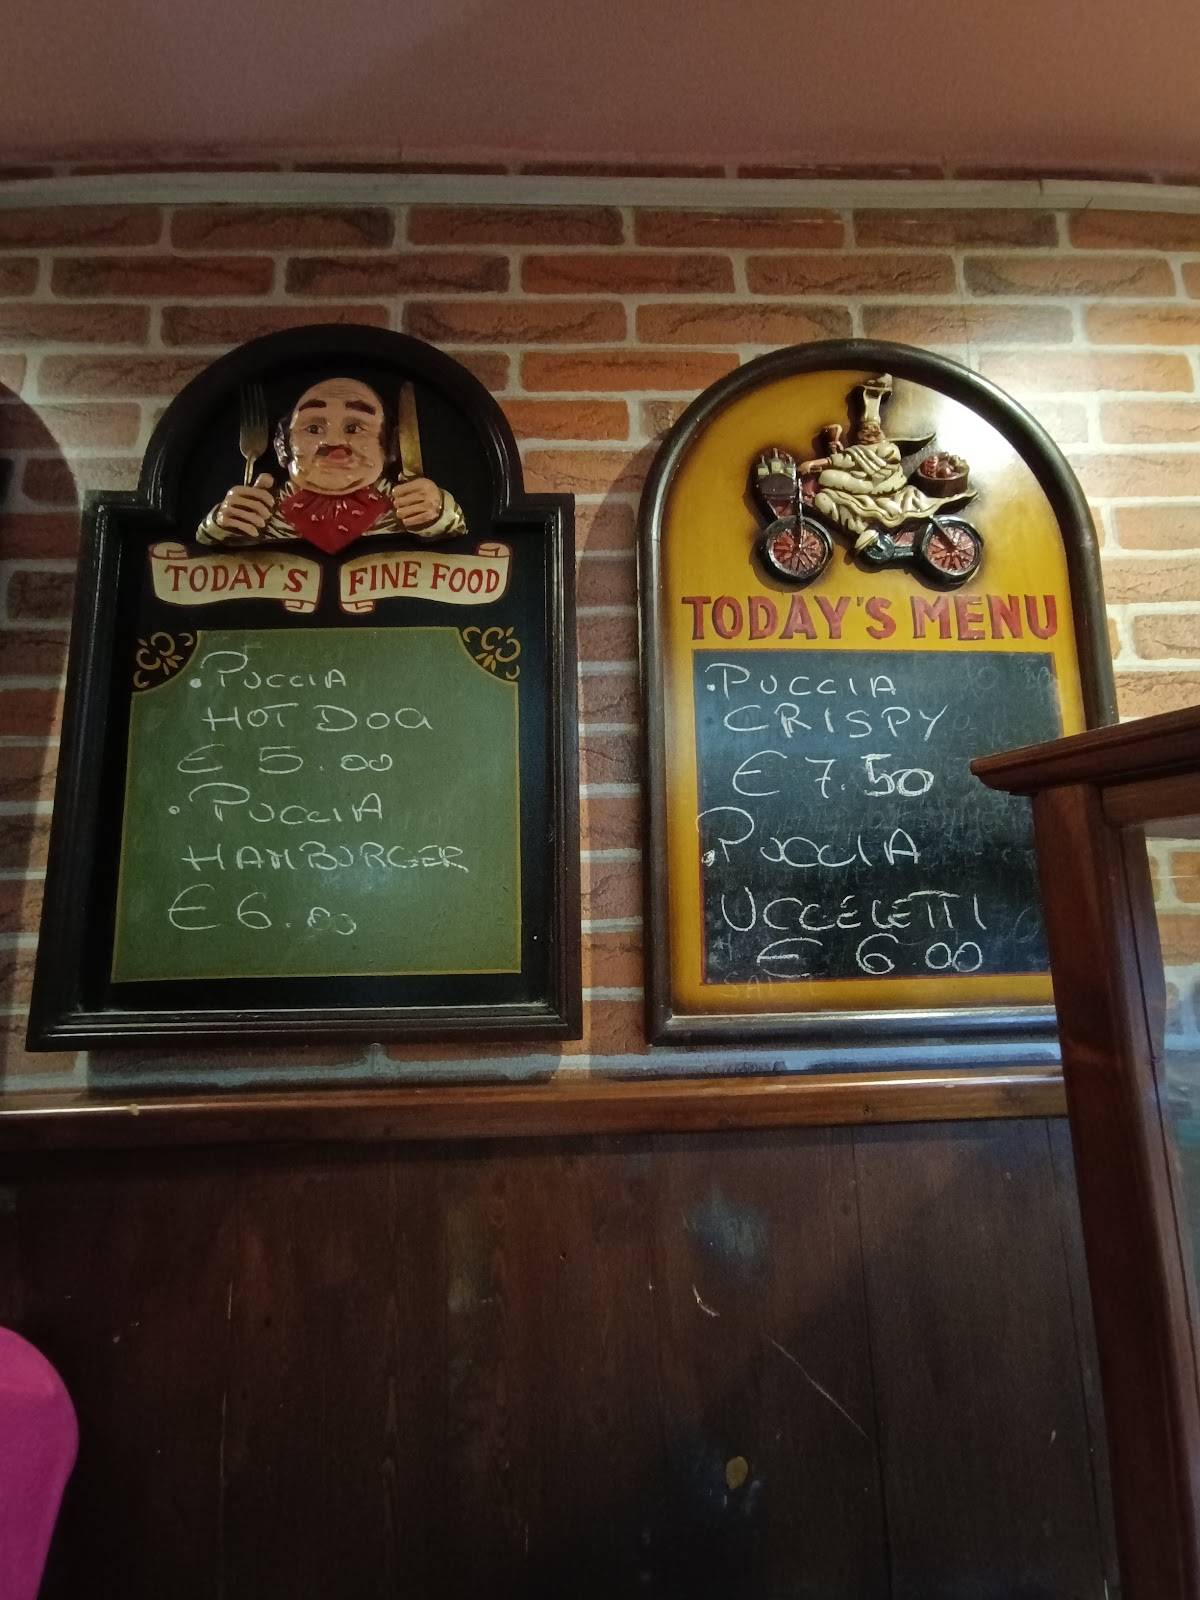 TODAY'S FINE FOOD
• PUCCIA
HOT DOG
€ 5.00
• PUCCIA
HAMBURGER
€ 6.00
TODAY'S MENU
• PUCCIA
CRISPY
€ 7.50
• PUCCIA
UCCELETTI
€ 6.00